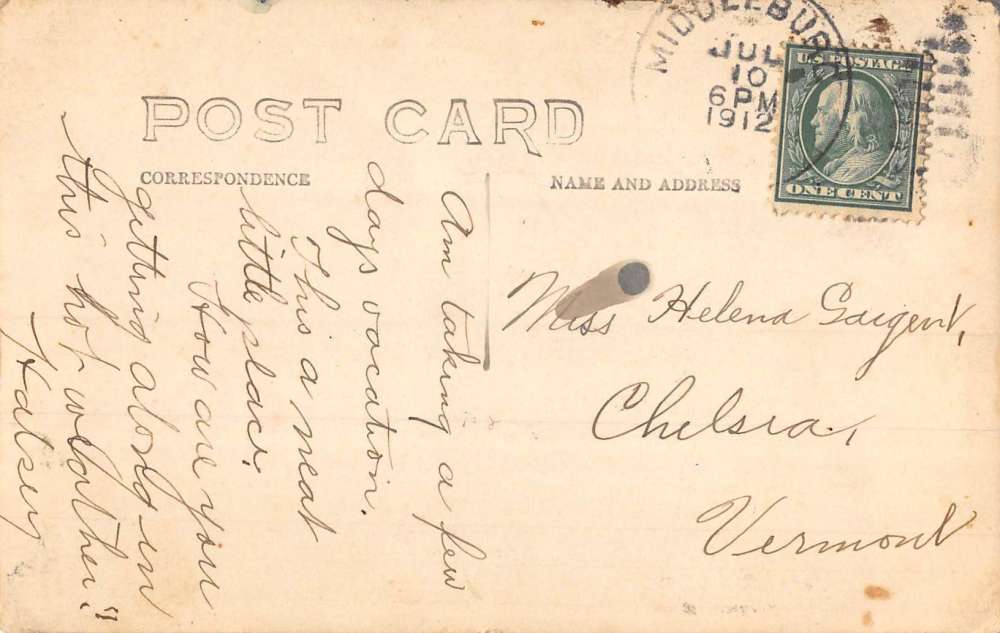 POST CARD
CORRESPONDENCE
NAME AND ADDRESS
MIDDLEBUR
JUL
10
6 PM
1912
U.S. POSTAGE
ONE CENT
Am taking a few
days vacation.
This a neat
little place.
How are you
getting along in
this hot weather?
Halsey
Miss Helena Sargent,
Chelsea,
Vermont